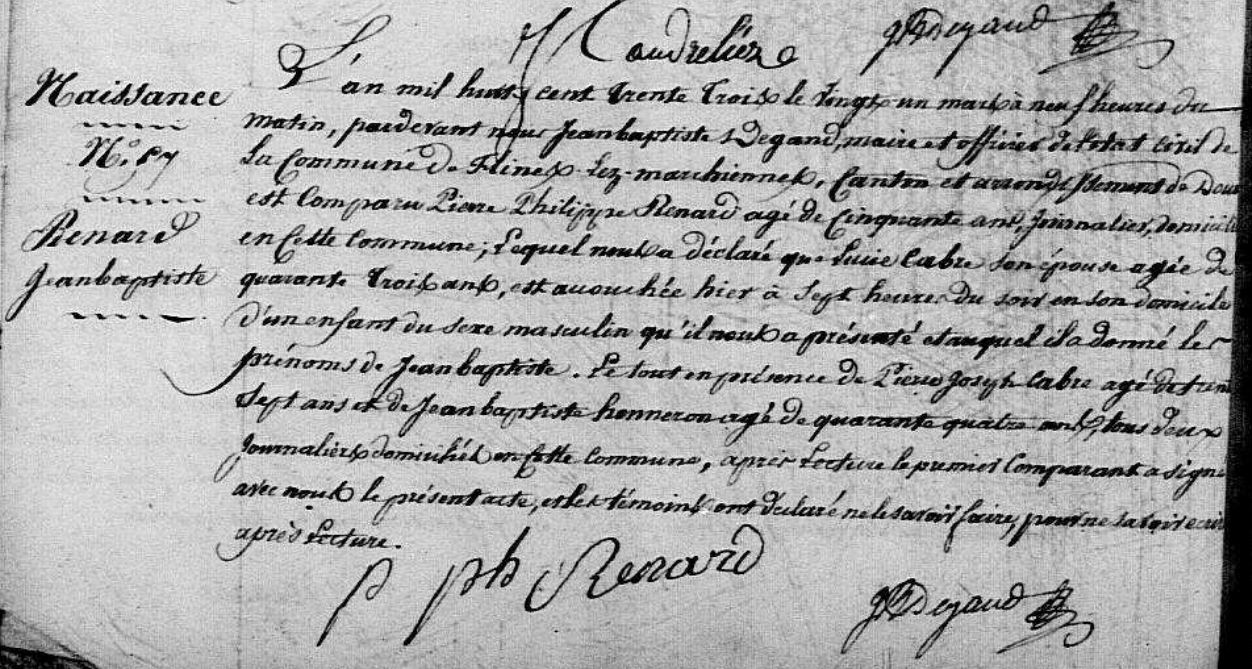 Caudrelier JBDegand
Naissance
N.° 57
Renard
Jeanbaptiste
L'an mil huit cent trente trois le vingt un mars à neuf heures du
matin, pardevant nous Jeanbaptiste Degand, maire et officier de l'état civil de
la Commune de Flines-Lez-marchiennes, Canton et arrondissement de Douai
est Comparu Pierre Philippe Renard agé de Cinquante ans, Journalier, domicilié
en Cette Commune; Lequel nous a déclaré que Lucie Cabre son épouse agée de
quarante Trois ans, est accouchée hier à Sept heures du soir en son domicile
d'un enfant du sexe masculin qu'il nous a présenté et auquel il a donné les
prénoms de Jeanbaptiste. Le tout en présence de Pierre Joseph Cabre agé de trente
Sept ans et de Jeanbaptiste honneron agé de quarante quatre ans, tous deux
Journaliers domiciliés en Cette Commune, après Lecture le premier Comparant a signé
avec nous le présent acte, et les témoins ont déclaré ne le savoir faire, pour ne savoir écrire
après Lecture.
p ph Renard JBDegand